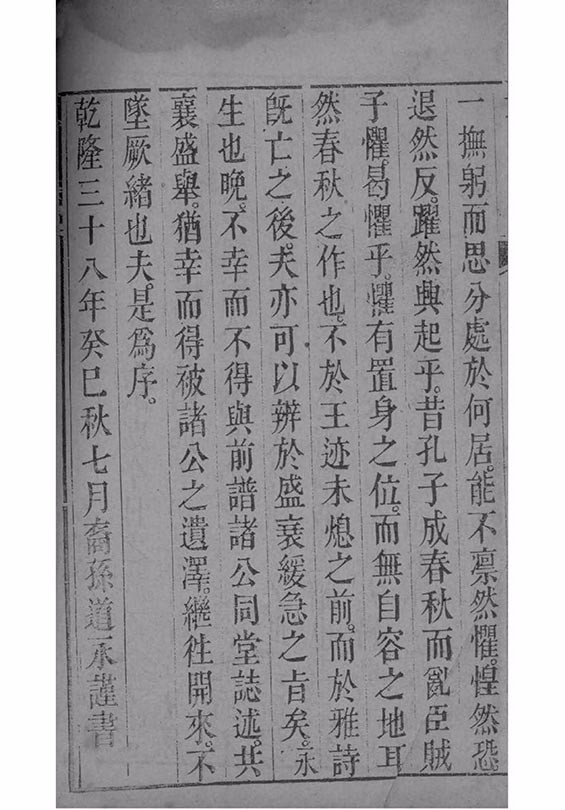 一撫躬而思分處於何居。能不凛然懼。惶然恐
退然反。躍然興起乎。昔孔子成春秋而亂臣賊
子懼。曷懼乎。懼有置身之位。而無自容之地耳
然春秋之作也。不於王迹未熄之前。而於雅詩
旣亡之後。夫亦可以辨於盛衰緩急之㫖矣。永
生也晚。不幸而不得與前譜諸公同堂誌述。共
襄盛舉。猶幸而得被諸公之遺澤。繼徃開來。不
墜厥緒也夫。是爲序。
乾隆三十八年癸巳秋七月裔孫道永謹書